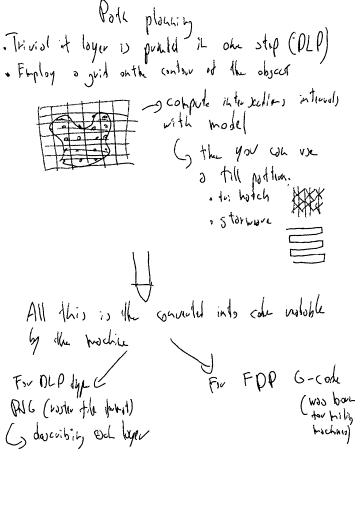 Path planning
• Trivial if layer is printed in one step (DLP)
• Employ a grid on the contour of the object
→ compute intersections intervals
with model
then you can use
a fill pattern.
• tri hatch
• starwave
All this is then converted into code readable
by the machine
For DLP type
PNG (raster file format)
describing each layer
For FDP G-code
(was born
for milling
machines)